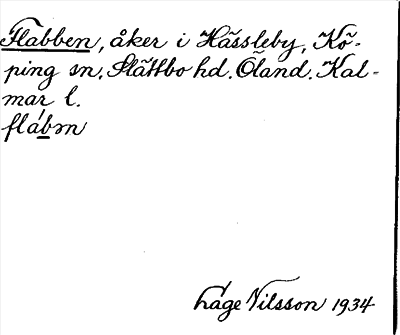 Flabben, åker i Hässleby, Kö-
ping sn. Slättbo hd. Öland. Kal-
mar l.
flábm
Låge Nilsson 1934